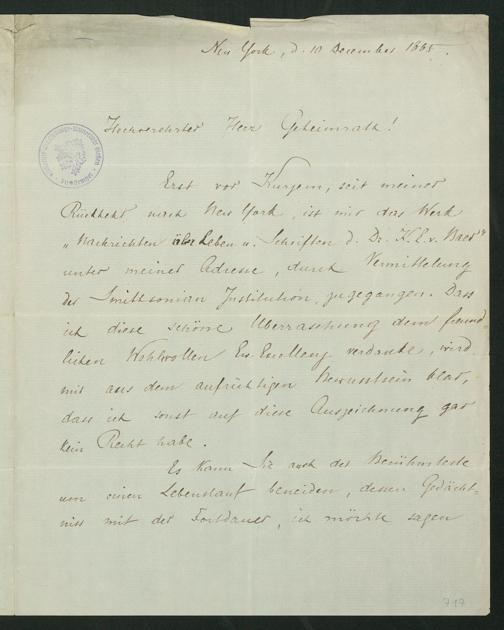 New York, d. 10 December 1865.
Hochverehrter Herr Geheimrath!
Erst vor Kurzem, seit meiner
Rückkehr nach New York, ist mir das Werk
„Nachrichten über Leben u. Schriften d. Dr. K. E. v. Baer"
unter meiner Adresse, durch Vermittelung
der Smithsonian Institution, zugegangen. Dass
ich diese schöne Ueberraschung dem freund-
lichen Wohlwollen Ew. Excellenz verdanke, wird
mir aus dem aufrichtigen Bewusstsein klar,
dass ich sonst auf diese Auszeichnung gar
kein Recht habe.
Es kann Sie auch der Berühmteste
um einen Lebenslauf beneiden, dessen Gedächt-
niss mit der Fortdauer, ich möchte sagen
717